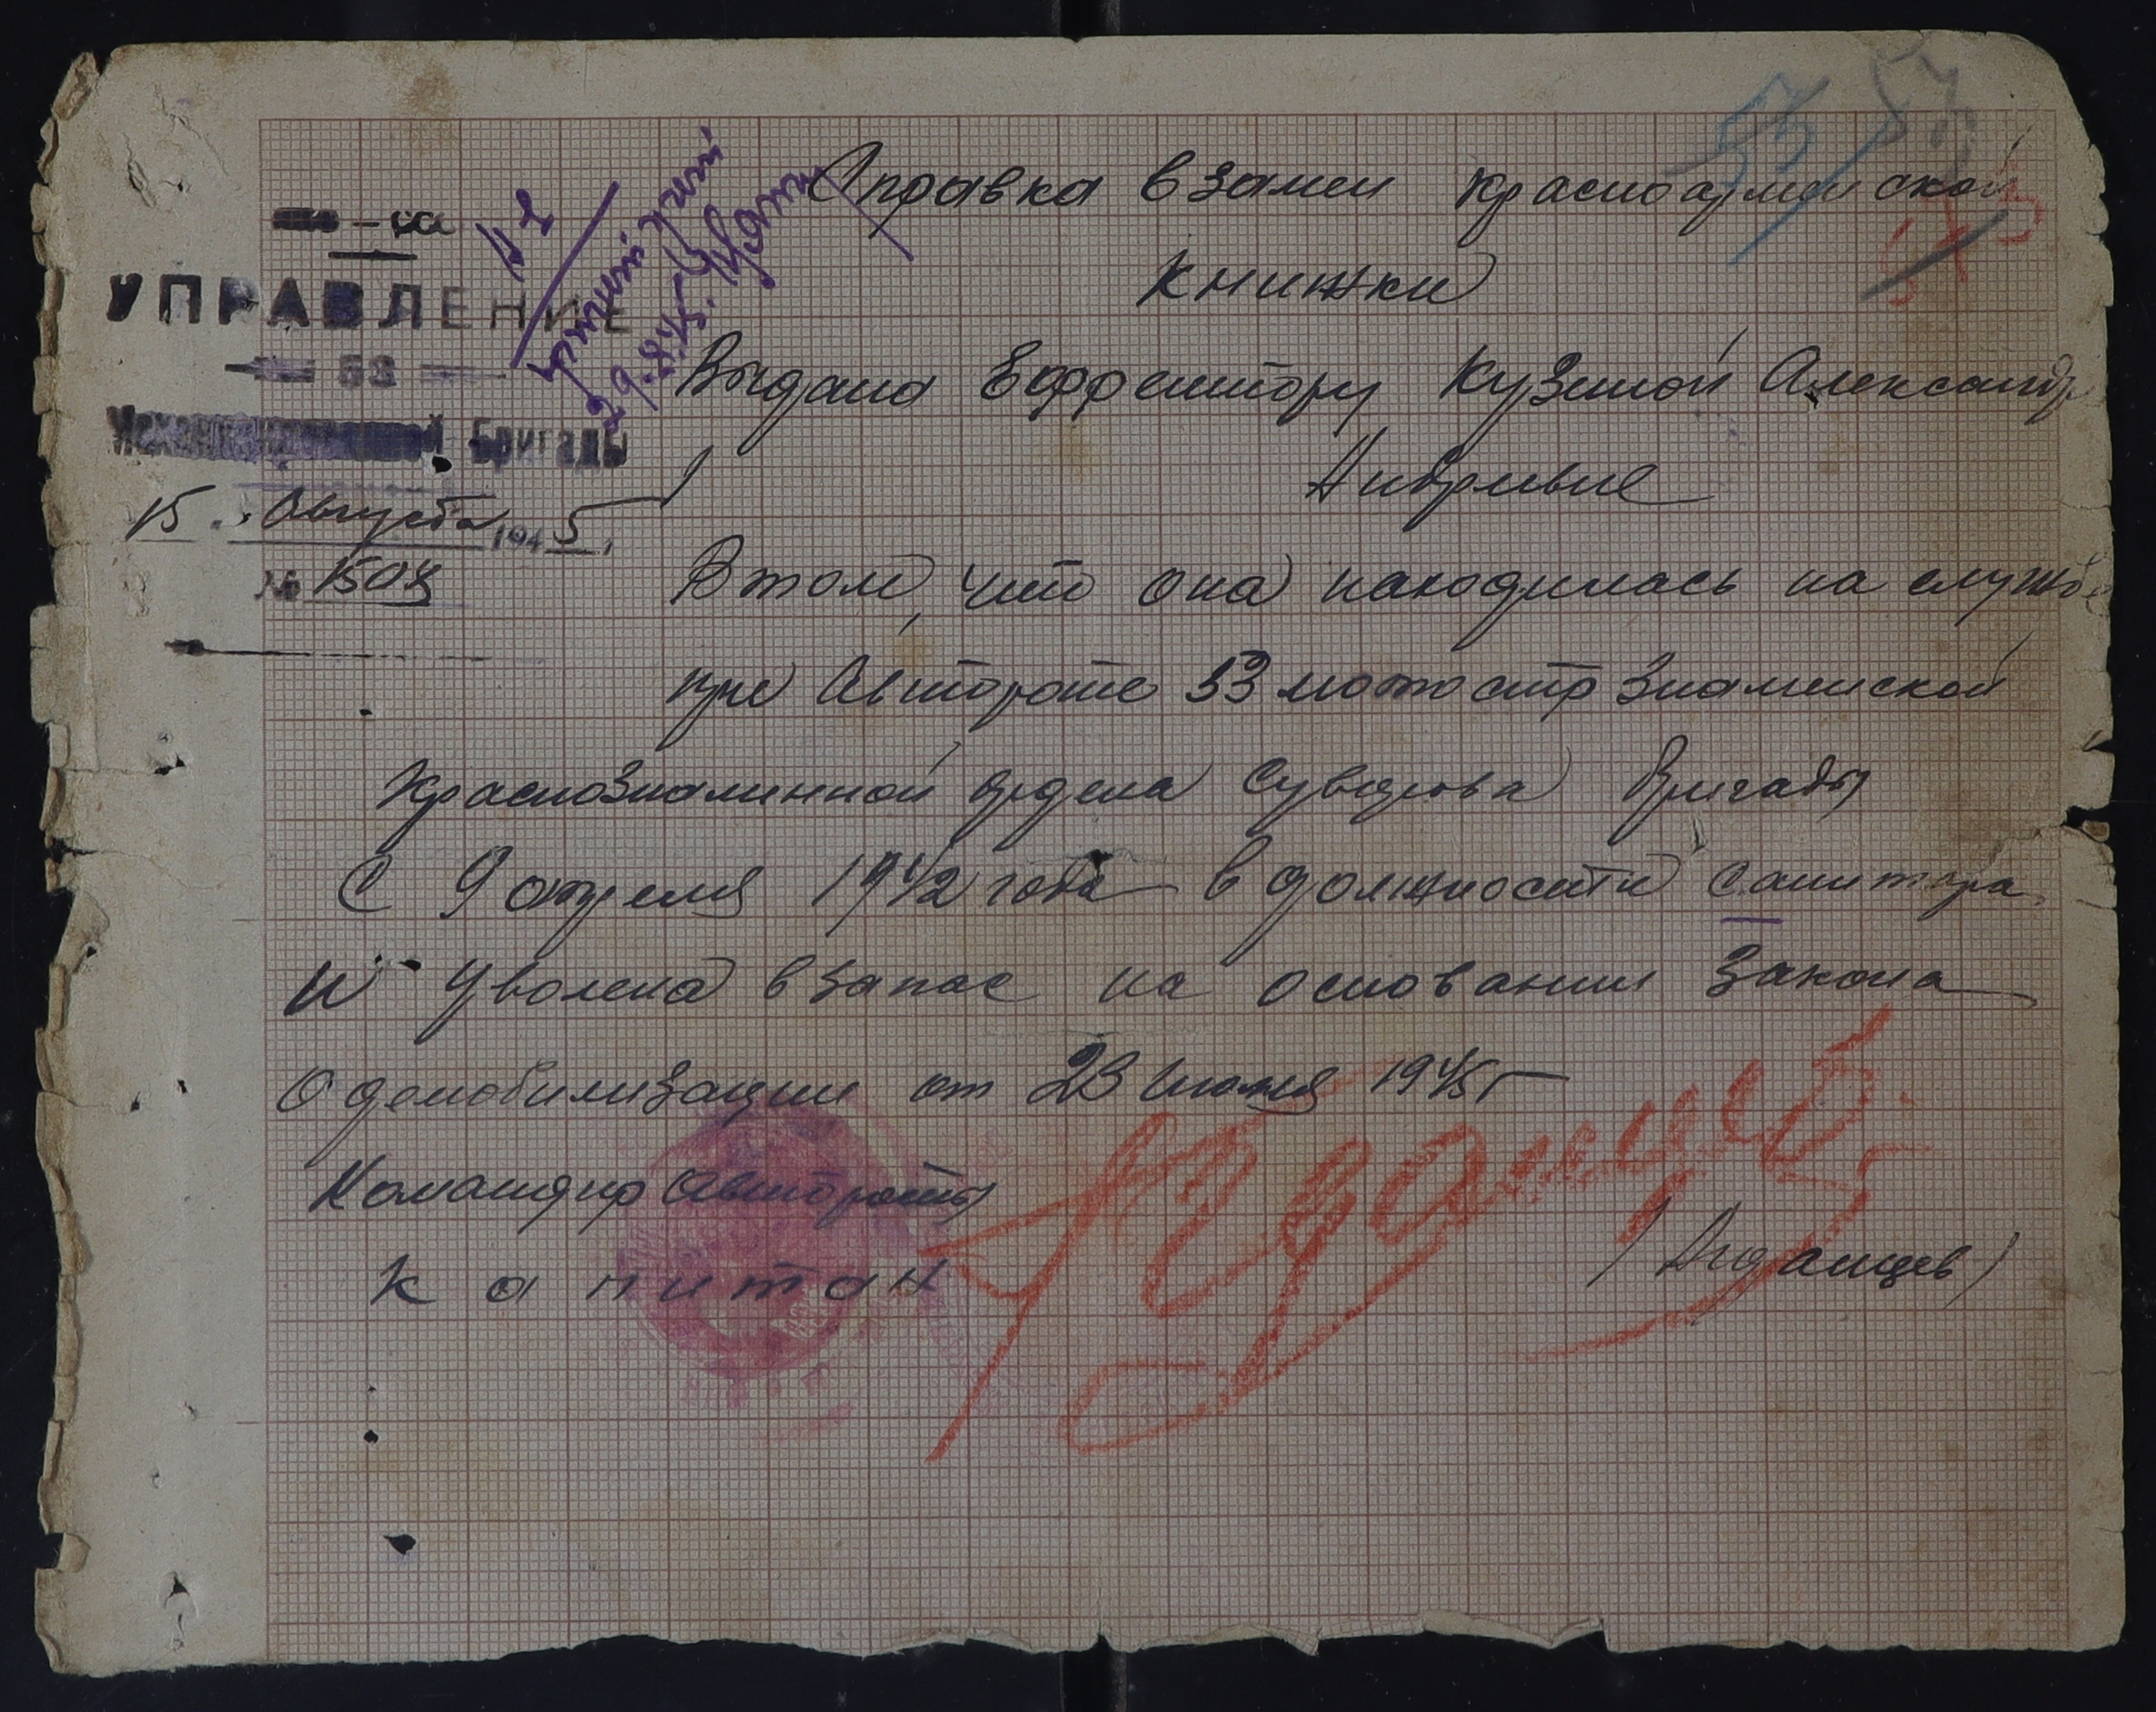 УПРАВЛЕНИЕ
53
Механизированной Бригады
15 Августа 1945
№ 1504
29.8.45.
53
Справка взамен красноармейской
книжки
Выдана Еффейтору Кузиной Александр
Андревне
В том, что она находилась на службе
при Автороте 53 мотостр Знаменской
Краснознаменной ордена Суворова Бригады
С 9 апреля 1942 года в должности Санитара
И Уволена в запас на основании Закона
О демобилизации от 23 Июня 1945 г
Командир Автороты
Капитан